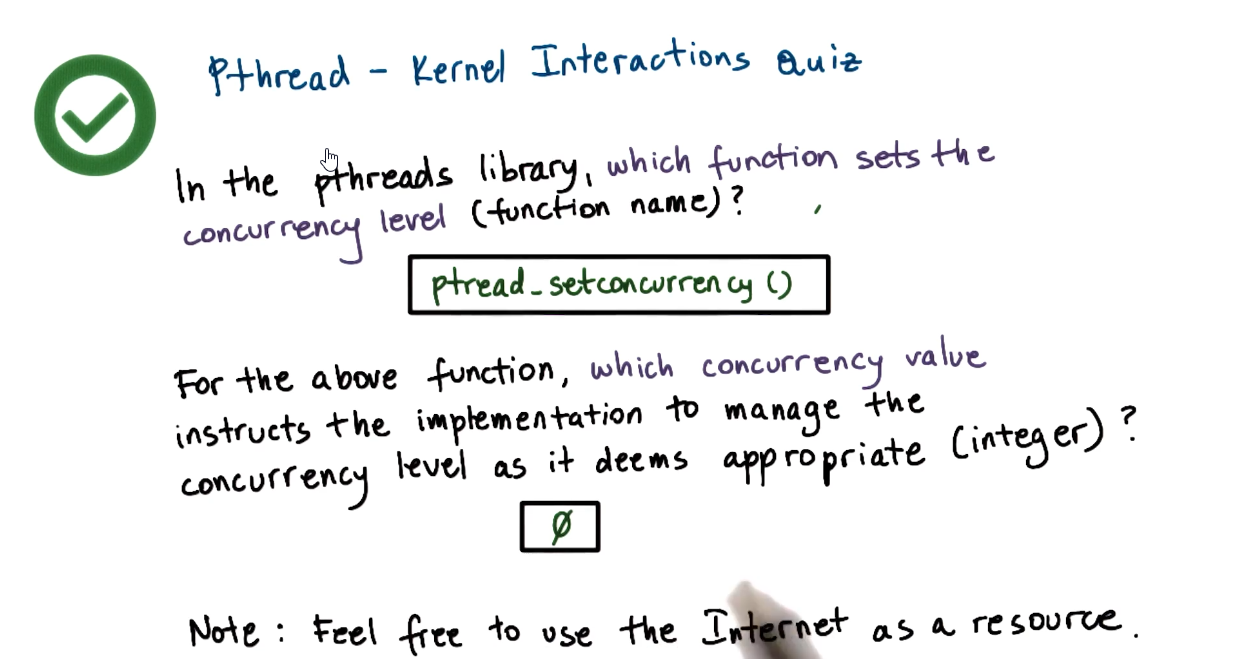 Pthread - Kernel Interactions Quiz
In the pthreads library, which function sets the
concurrency level (function name)?
ptread_setconcurrency ()
For the above function, which concurrency value
instructs the implementation to manage the
concurrency level as it deems appropriate (integer)?
0
Note: Feel free to use the Internet as a resource.